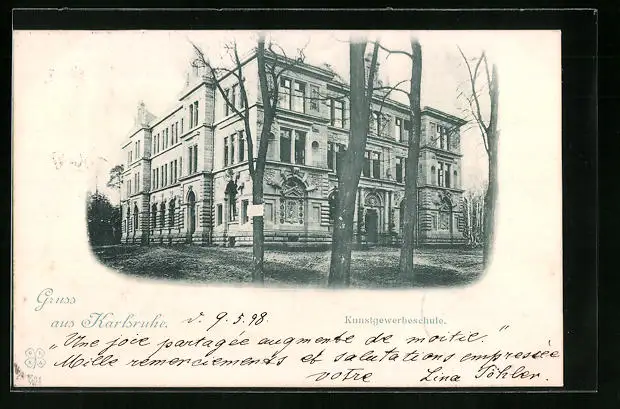 Gruss
aus Karlsruhe. d. 9.5.98. Kunstgewerbeschule.
"Une joie partagée augmente de moitié."
Mille remerciements et salutations empressée
votre Lina Töhler.